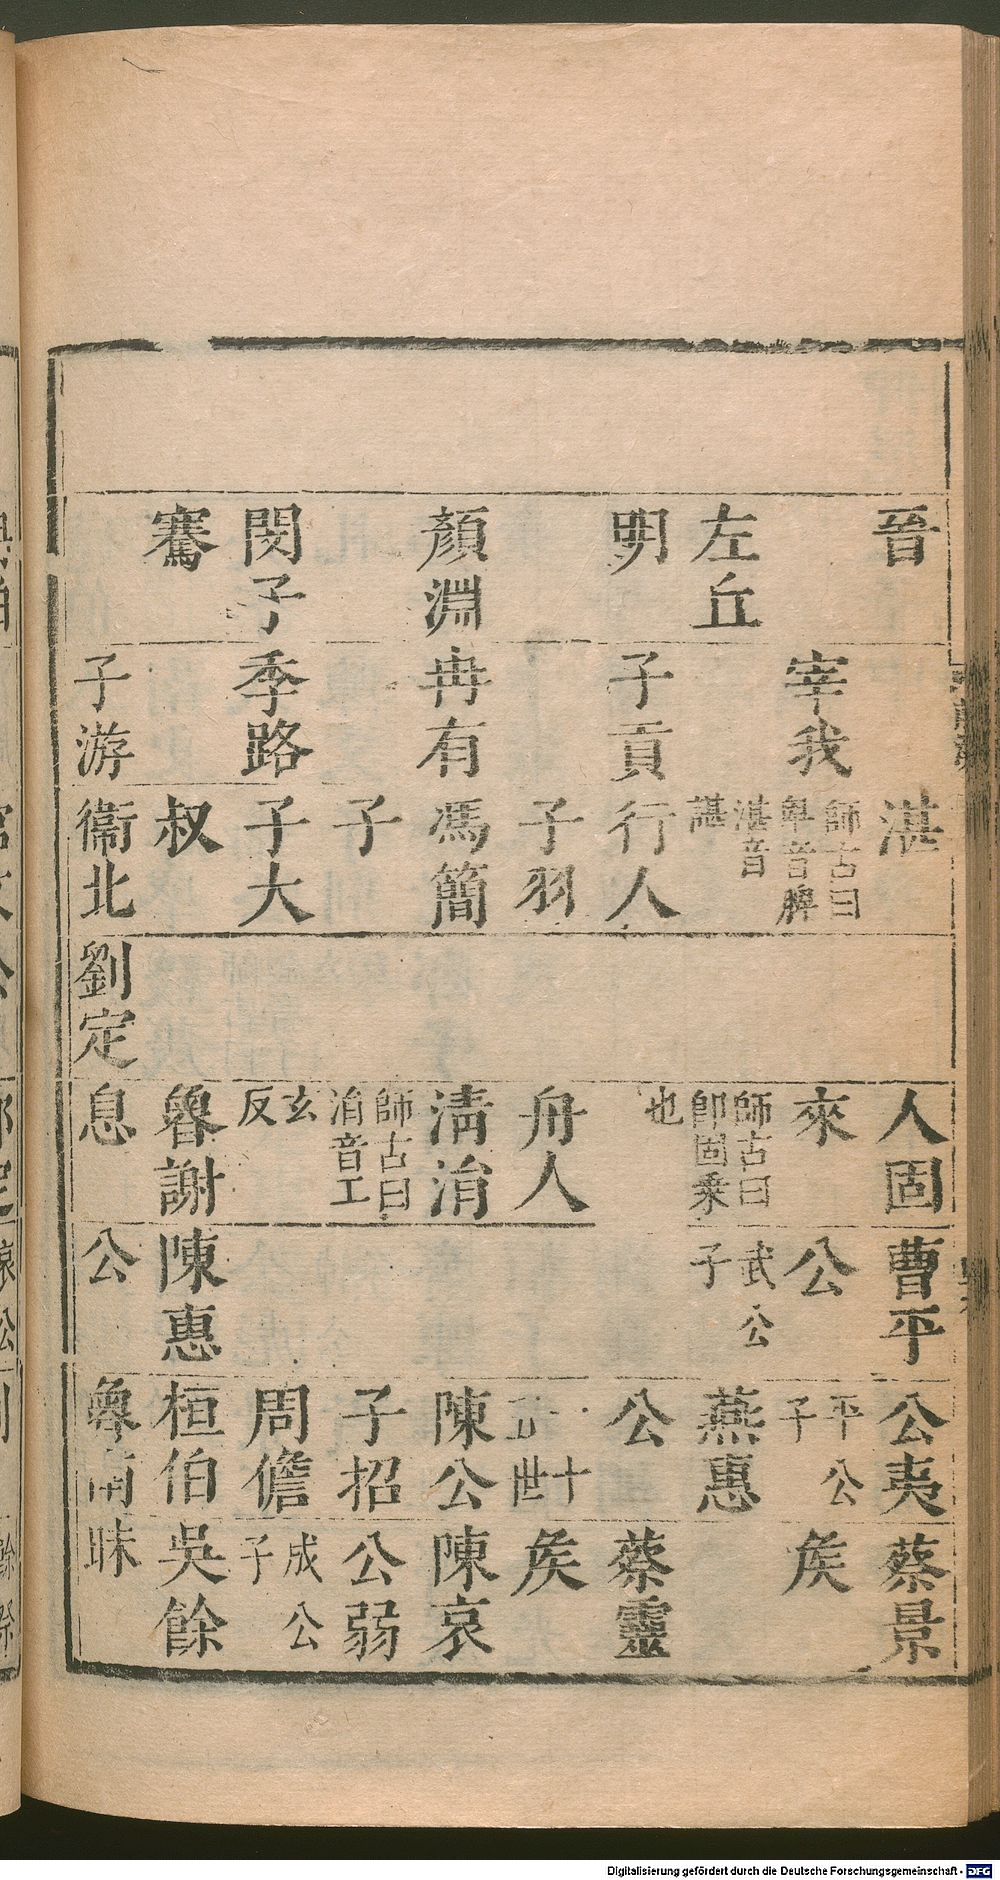 晉 湛 人固 曹平 公夷 蔡景
宰我 師古曰卑音脾湛音諶 來 公 平公子 矦
左丘 師古曰即固乘也 武公子 燕惠
明 子貢 行人 公 蔡靈
子羽 舟人 十世 矦
顏淵 冉有 馮簡 淸涓 陳公 陳哀
子 師古曰涓音工玄反 子招 公弱
閔子 季路 子大 周儋 成公子
騫 叔 魯謝 陳惠 桓伯 吳餘
子游 衞北 劉定 息 公 魯南 昧
Digitalisierung gefördert durch die Deutsche Forschungsgemeinschaft - DFG